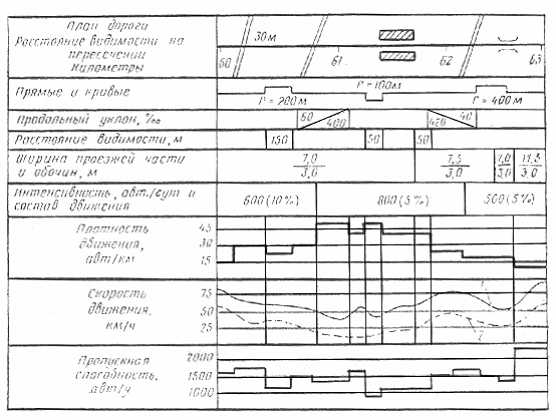 План дороги
Расстояние видимости на
пересечении
Километры
30м
60
61
62
63
Прямые и кривые
r=200м
r=100м
r=400м
Продольный уклон, ‰
60
400
420
40
Расстояние видимости, м
150
50
50
Ширина проезжей части
и обочин, м
7,0
3,0
7,5
3,0
7,0
3,0
11,5
3,0
Интенсивность, авт./сут и
состав движения
600(10%)
800(5%)
500(5%)
Плотность
движения,
авт/км
45
30
15
Скорость
движения,
км/ч
75
50
25
1
2
Пропускная
способность,
авт/ч
2000
1500
1000